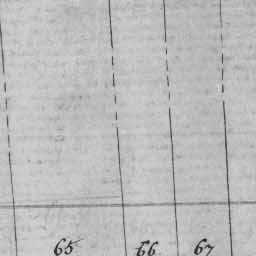 65 66 67